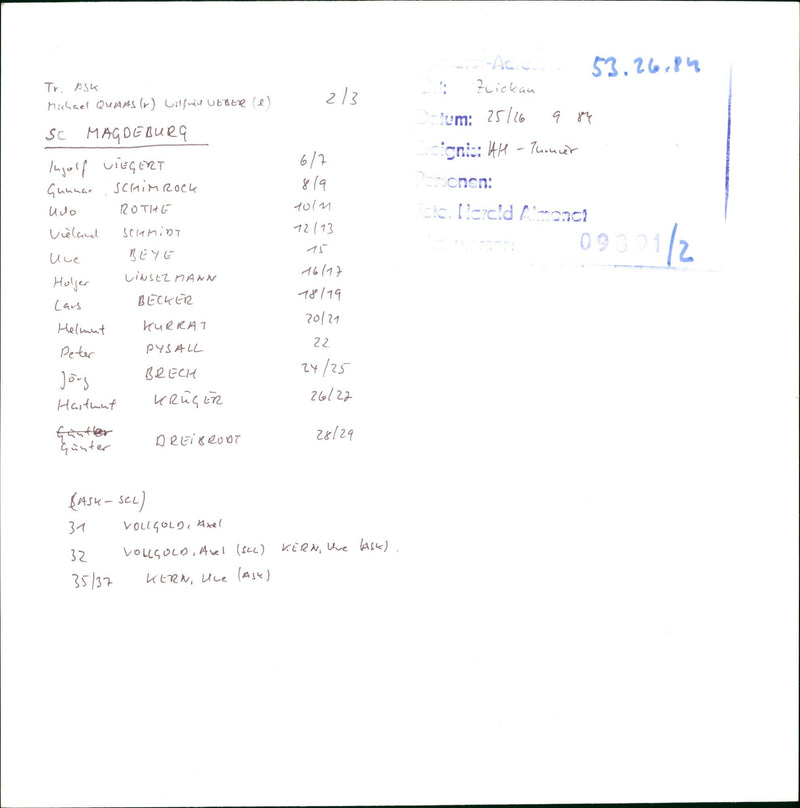 Tr. ASK
Michael QUAAS (r) Wilfried WEBER (l) 2/3
SC MAGDEBURG
Ingolf WIEGERT 6/7
Gunnar SCHIMROCK 8/9
Udo ROTHE 10/11
Wieland SCHMIDT 12/13
Uwe BEYE 15
Holger WINSELMANN 16/17
Lars BECKER 18/19
Helmut KURRAT 20/21
Peter PYSALL 22
Jörg BRECH 24/25
Hartmut KRÜGER 26/27
Günter
Günter DREIBRODT 28/29
(ASK - SCL)
31 VOLLGOLD, Axel
32 VOLLGOLD, Axel (SCL) KERN, Uwe (ASK).
35/37 KERN, Uwe (ASK)
53.26.84
Ort: Zwickau
Datum: 25/26 9 84
Ereignis: HH - Turnier
Personen:
Foto: Harald Almonat
09891/2